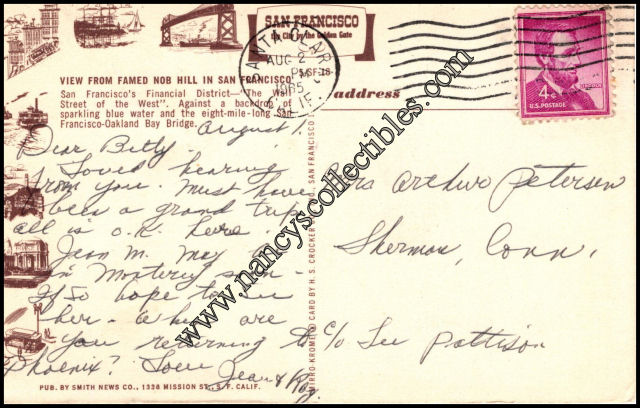 SAN FRANCISCO
the City by the Golden Gate
VIEW FROM FAMED NOB HILL IN SAN FRANCISCO
San Francisco's Financial District—"The Wall
Street of the West". Against a backdrop of
sparkling blue water and the eight-mile-long San
Francisco-Oakland Bay Bridge.
SF-18
address
SANTA CLARA
AUG 2
PM
1965
4¢
U.S. POSTAGE
LINCOLN
August 1.
Dear Betty-
Loved hearing
from you. Must have
been a grand trip.
all is o.k. here.
Jean M. may be
in Monterey soon-
If so hope to see
her- When are
you returning to
Phoenix? Love
Jean & Roy
Mrs Arthur Petersen
Sherman, Conn.
c/o Lee Pattison
MIRRO-KROME CARD BY H. S. CROCKER CO., SAN FRANCISCO
PUB. BY SMITH NEWS CO., 1338 MISSION ST., S. F. CALIF.
www.nancyscollectibles.com